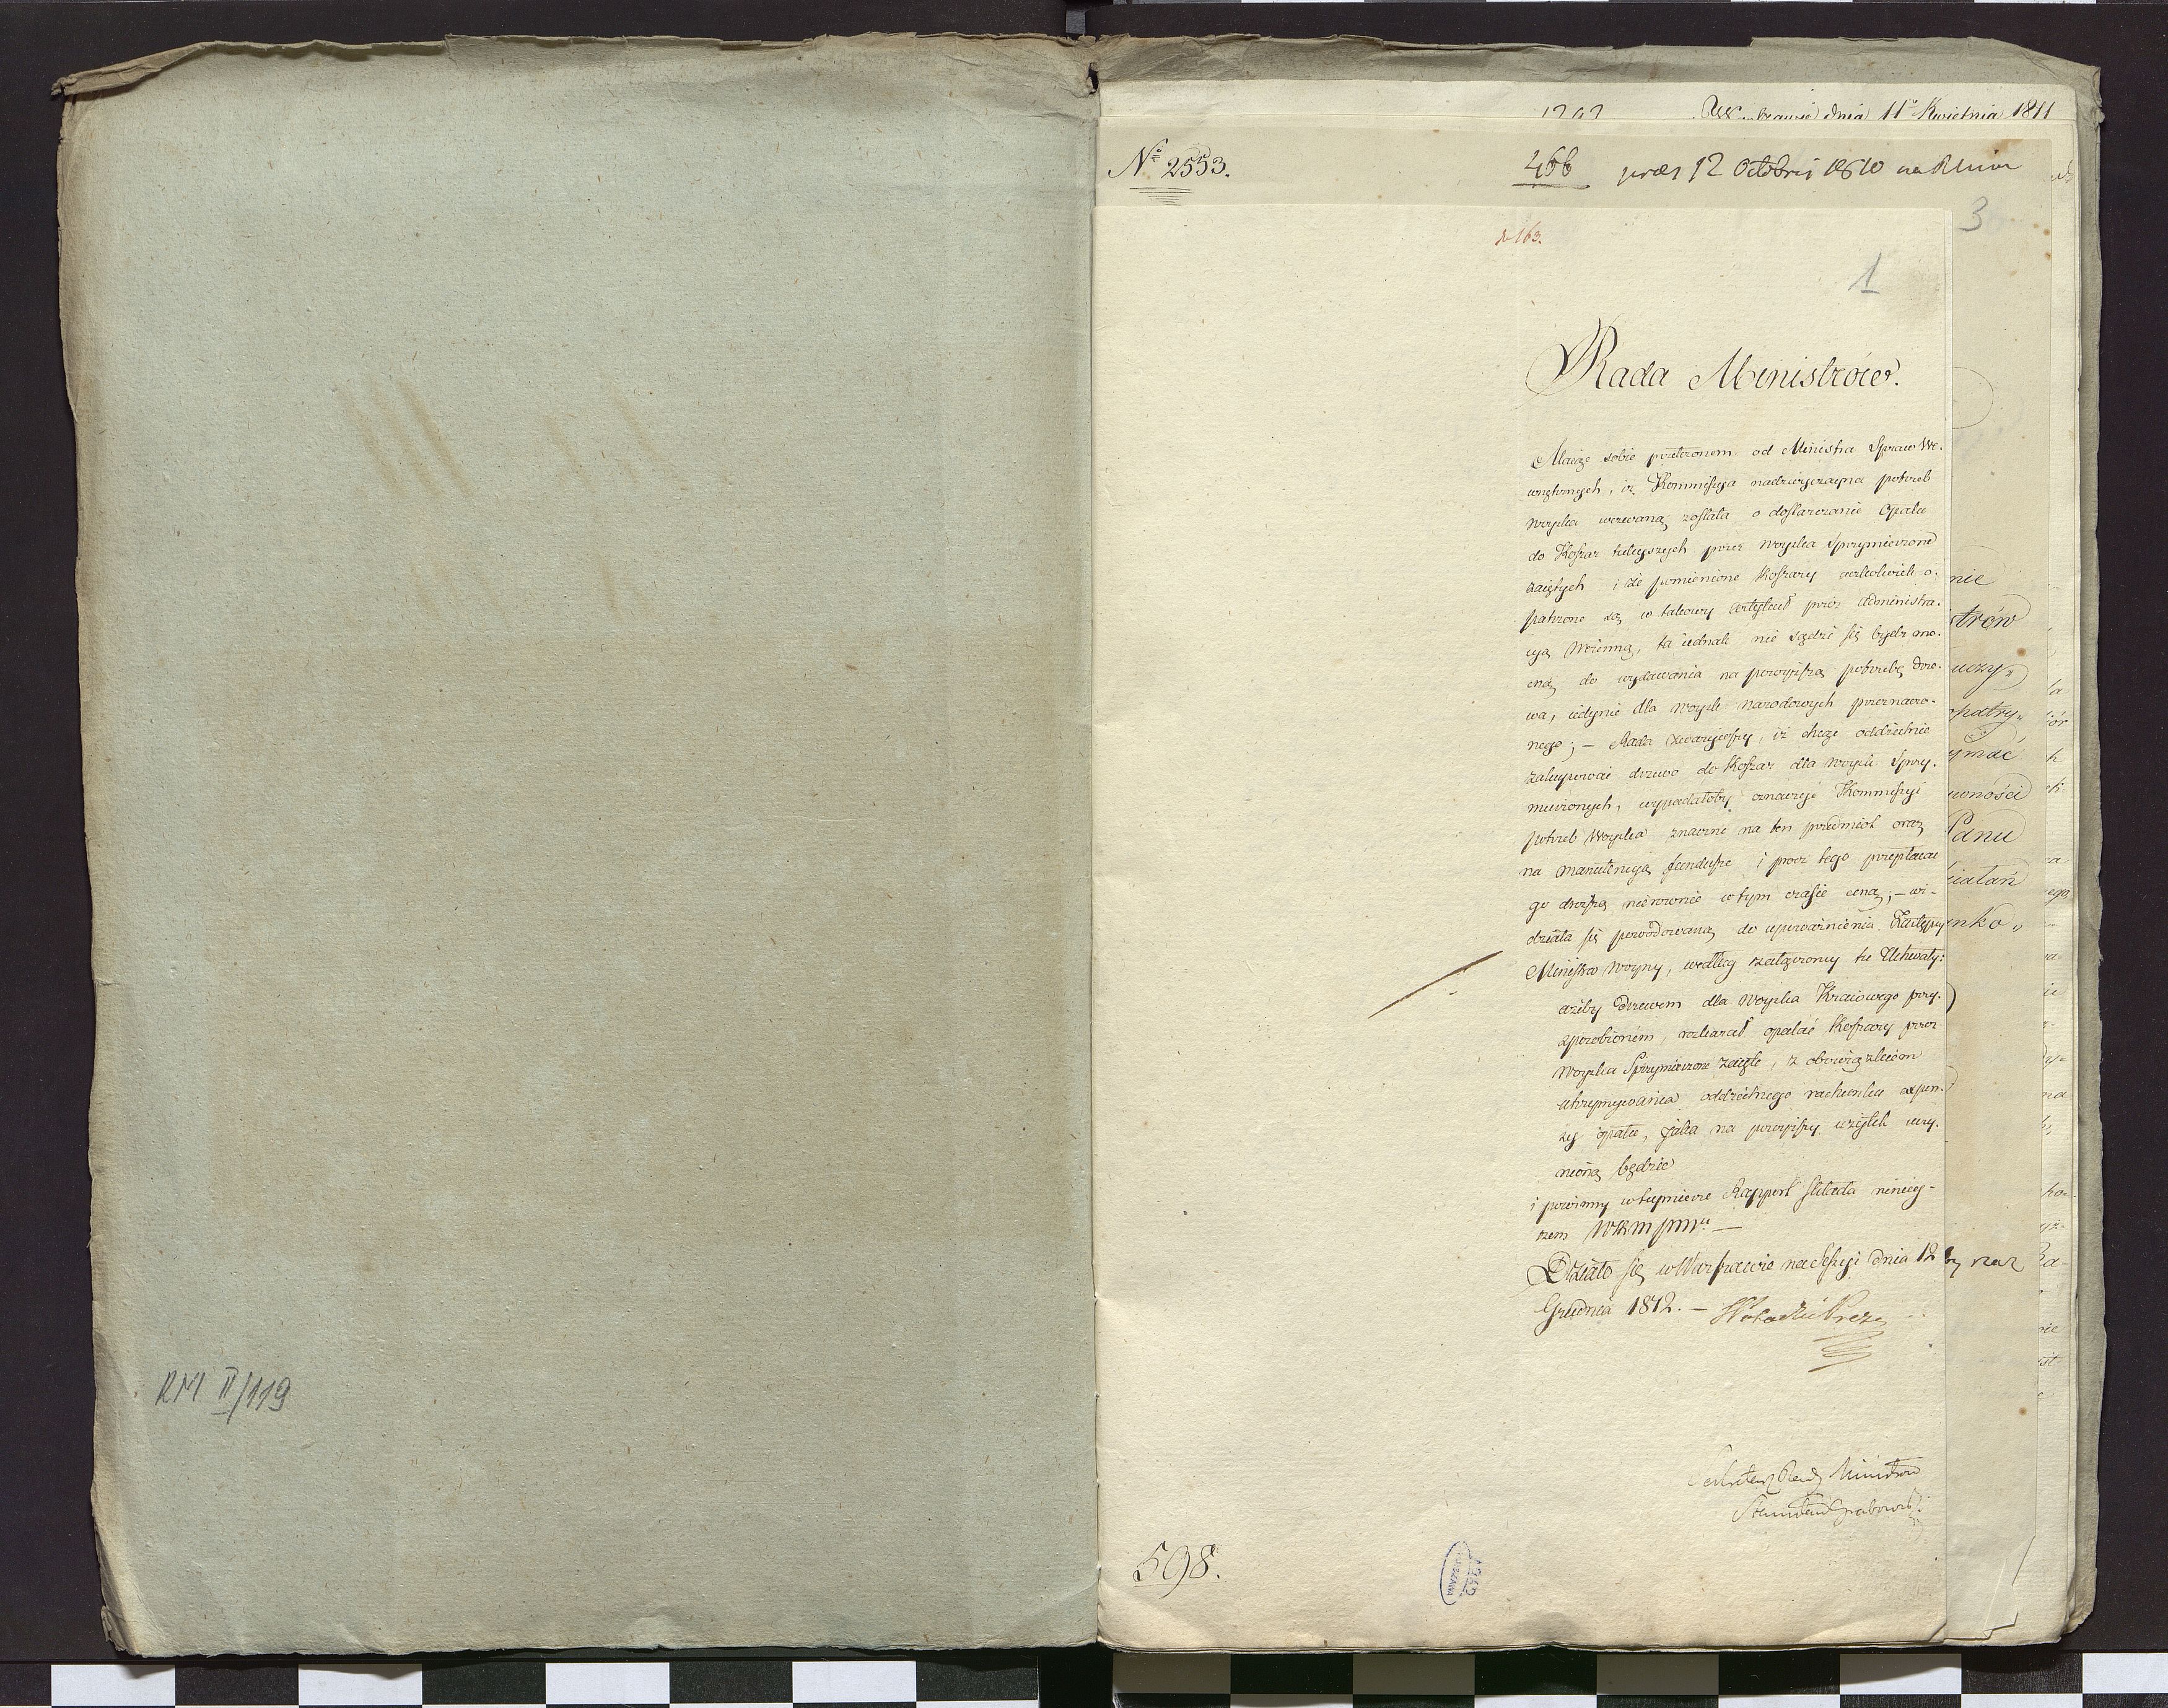 RM II/119
1292
Warszawie dnia 11º Kwietnia 1811
Nº 2553.
466 præs 12 Octobris 1810
3
N 163.
1
Rada Ministrów.
Maiąc sobie przełożonem od Ministra Spraw We-
wnętrznych, iż Kommissya nadzwyczayna potrzeb
Woyska wezwaną została o dostarczanie Opału
do Koszar tuteyszych przez woyska Sprzymierzone
zaiętych i że pomienione Koszary aczkolwiek o-
patrzone są w takowy Artykuł przez Administra-
cyą Woienną, ta iednak nie sądzi się bydź mo-
cną do wydawania na powyższą potrzebę drze-
wa, iedynie dla Woysk narodowych przeznaczo-
nego; – Rada zważywszy, iż chcąc oddzielnie
zakupować drzewo do Koszar dla woysk Sprzy-
mierzonych, wypadałoby oznaczyć Kommissyi
potrzeb Woyska znaczne na ten przedmiot oraz
na manutencyą fundusze i przez tego przepłacać
go droższą nierównie w tym czasie ceną; – wi-
działa się powodowaną do upoważnienia Zastępcy
Ministra Woyny, według załączoney tu Uchwały:
ażeby drzewem dla Woyska Kraiowego przy-
sposobionem, rozkazał opalać Koszary przez
Woyska Sprzymierzone zaięte, z obowiązkiem
utrzymywania oddzielnego rachunku expen-
sy opału, jaka na powyższy użytek uczy-
nioną będzie
i powinny w tey mierze Rapport składa niniey-
szem WKMPMu –
Działo się w Warszawie na Sessyi dnia 12
Grudnia 1812. – St Potocki Prezes
Sekretarz Rady Ministrów
Stanisław Grabowski
598.
nie
strów
uczy„
opatry„
ymać
wności
Panu
ziałań
nko„